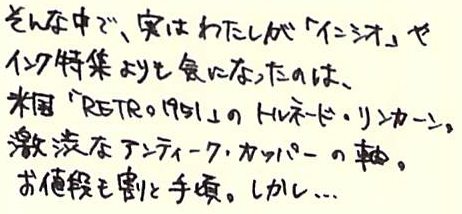 そんな中で、実はわたしが「インジオ」や
インク特集よりも気になったのは、
米国「RETRO 1951」のトルネード・リンカーン。
激渋なアンティーク・カッパーの軸。
お値段も割と手頃。しかし…